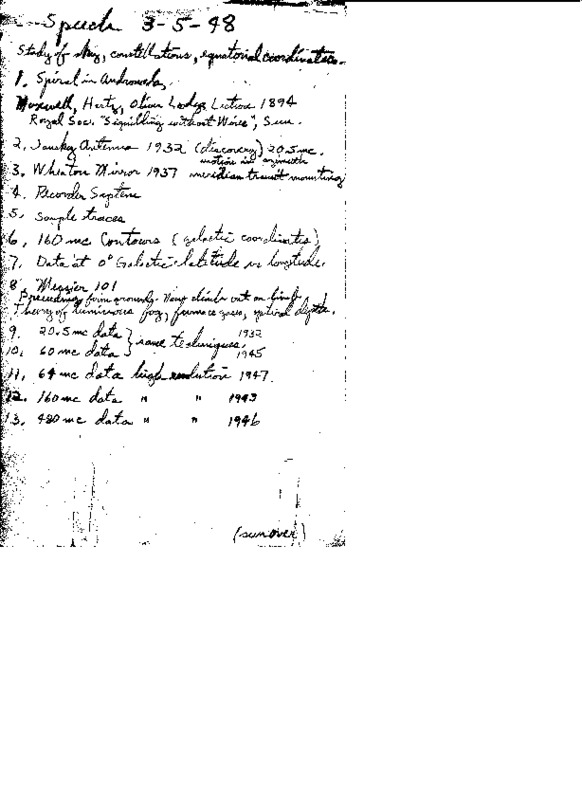 Speech 3-5-48
Study of sky, constellations, equatorial coordinates.
1. Spiral in Andromeda,
Maxwell, Hertz, Oliver Lodge Lecture 1894
Royal Soc. "Signalling without Wires", Sun.
2. Jansky Antenna 1932 (discovery) 20.5 mc.
motion in azimuth
3. Wheaton Mirror 1937 meridian transit mounting
4. Recorder System
5. Sample traces
6. 160 mc Contours (galactic coordinates)
7. Data at 0° Galactic latitude vs longitude.
8 Messier 101
Proceeding from arounds. Now climb out on limb.
Theory of luminous fog, furnace gases, optical depth.
9. 20.5 mc data } same techniques. 1932
10. 60 mc data } 1945
11. 64 mc data high resolution 1947.
12. 160 mc data " " 1943
13. 480 mc data " " 1946
(sun over)